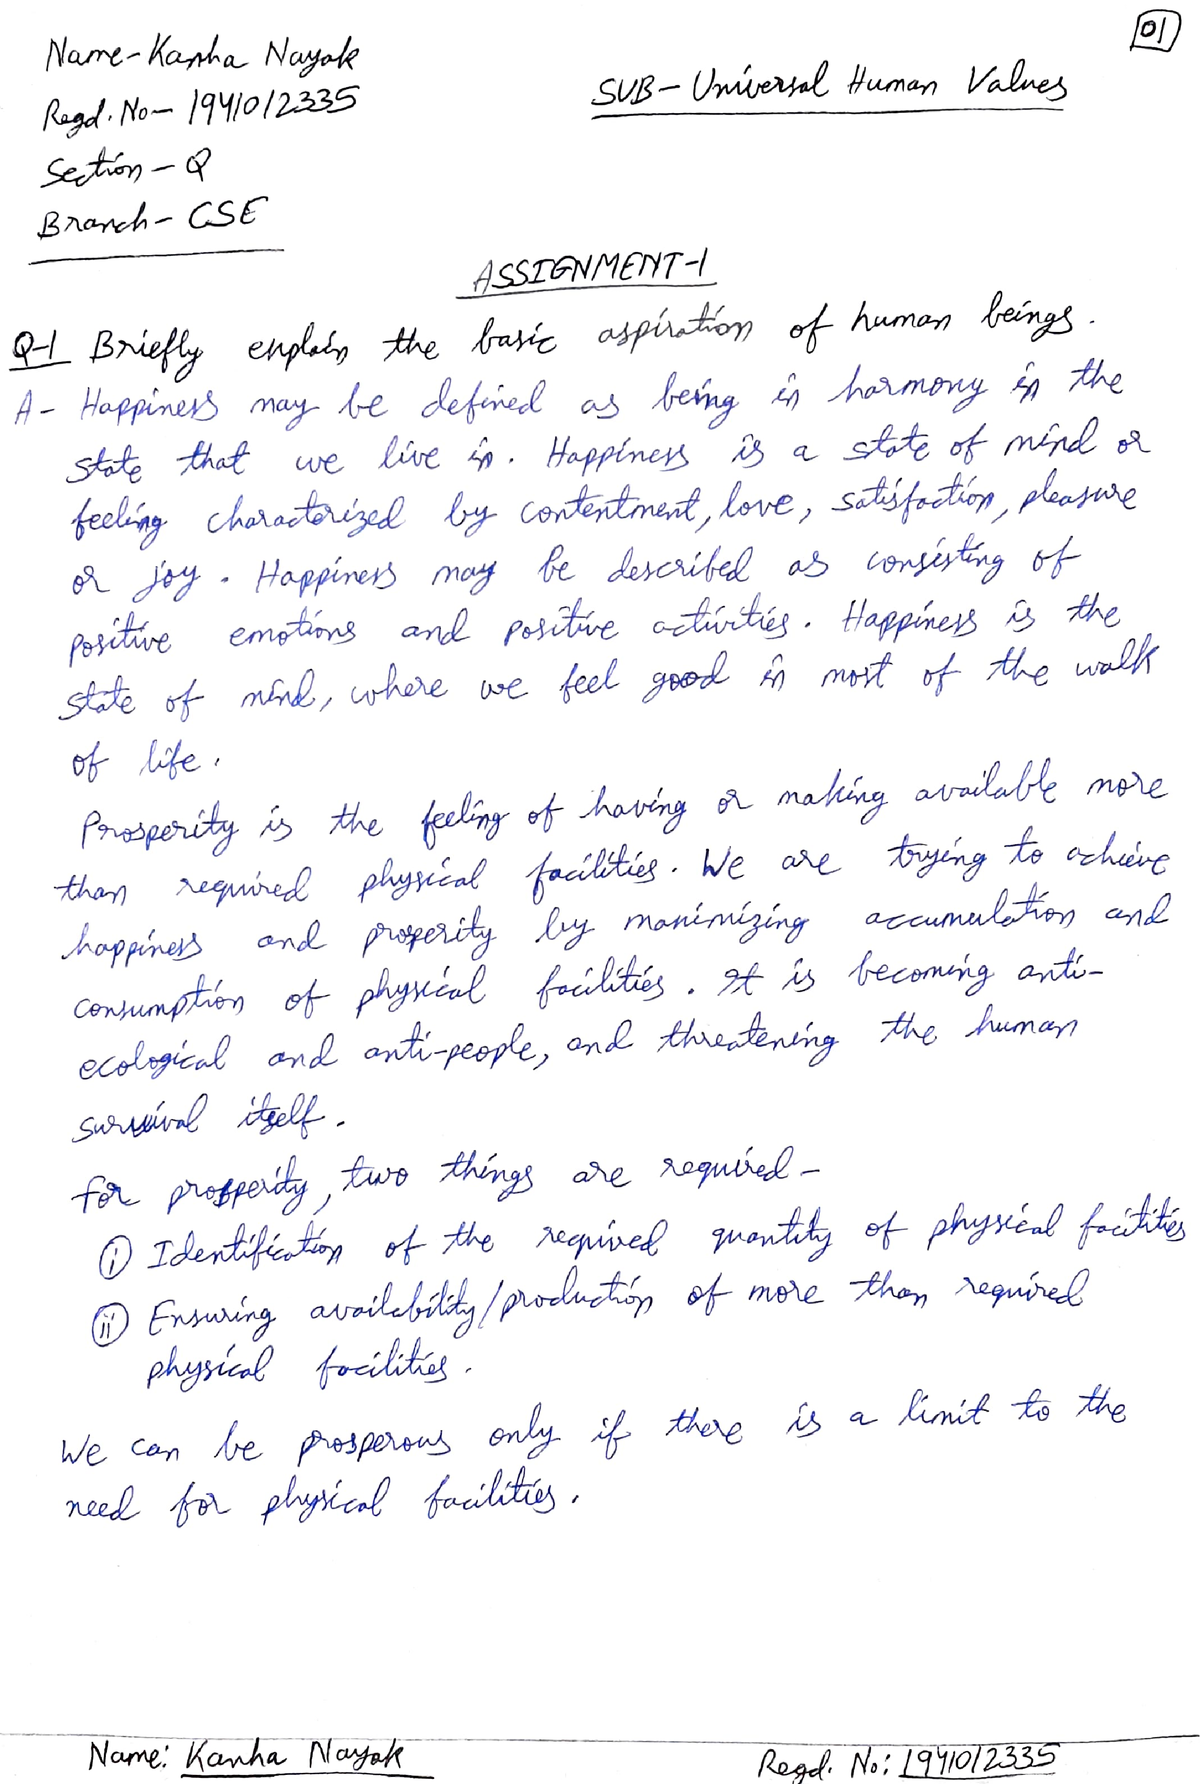 01
Name-Kanha Nayak
SUB-Universal Human Values
Regd. No- 1941012335
Section-Q
Branch-CSE
ASSIGNMENT-1
Q-1 Briefly explain the basic aspiration of human beings.
A- Happiness may be defined as being in harmony in the
state that we live in. Happiness is a state of mind or
feeling characterized by contentment, love, satisfaction, pleasure
or joy. Happiness may be described as consisting of
positive emotions and positive activities. Happiness is the
state of mind, where we feel good in most of the walk
of life.
Prosperity is the feeling of having or making available more
than required physical facilities. We are trying to achieve
happiness and prosperity by maximizing accumulation and
consumption of physical facilities. It is becoming anti-
ecological and anti-people, and threatening the human
survival itself.
For prosperity, two things are required-
(i) Identification of the required quantity of physical facilities
(ii) Ensuring availability/production of more than required
physical facilities.
We can be prosperous only if there is a limit to the
need for physical facilities.
Name: Kanha Nayak
Regd. No: 1941012335